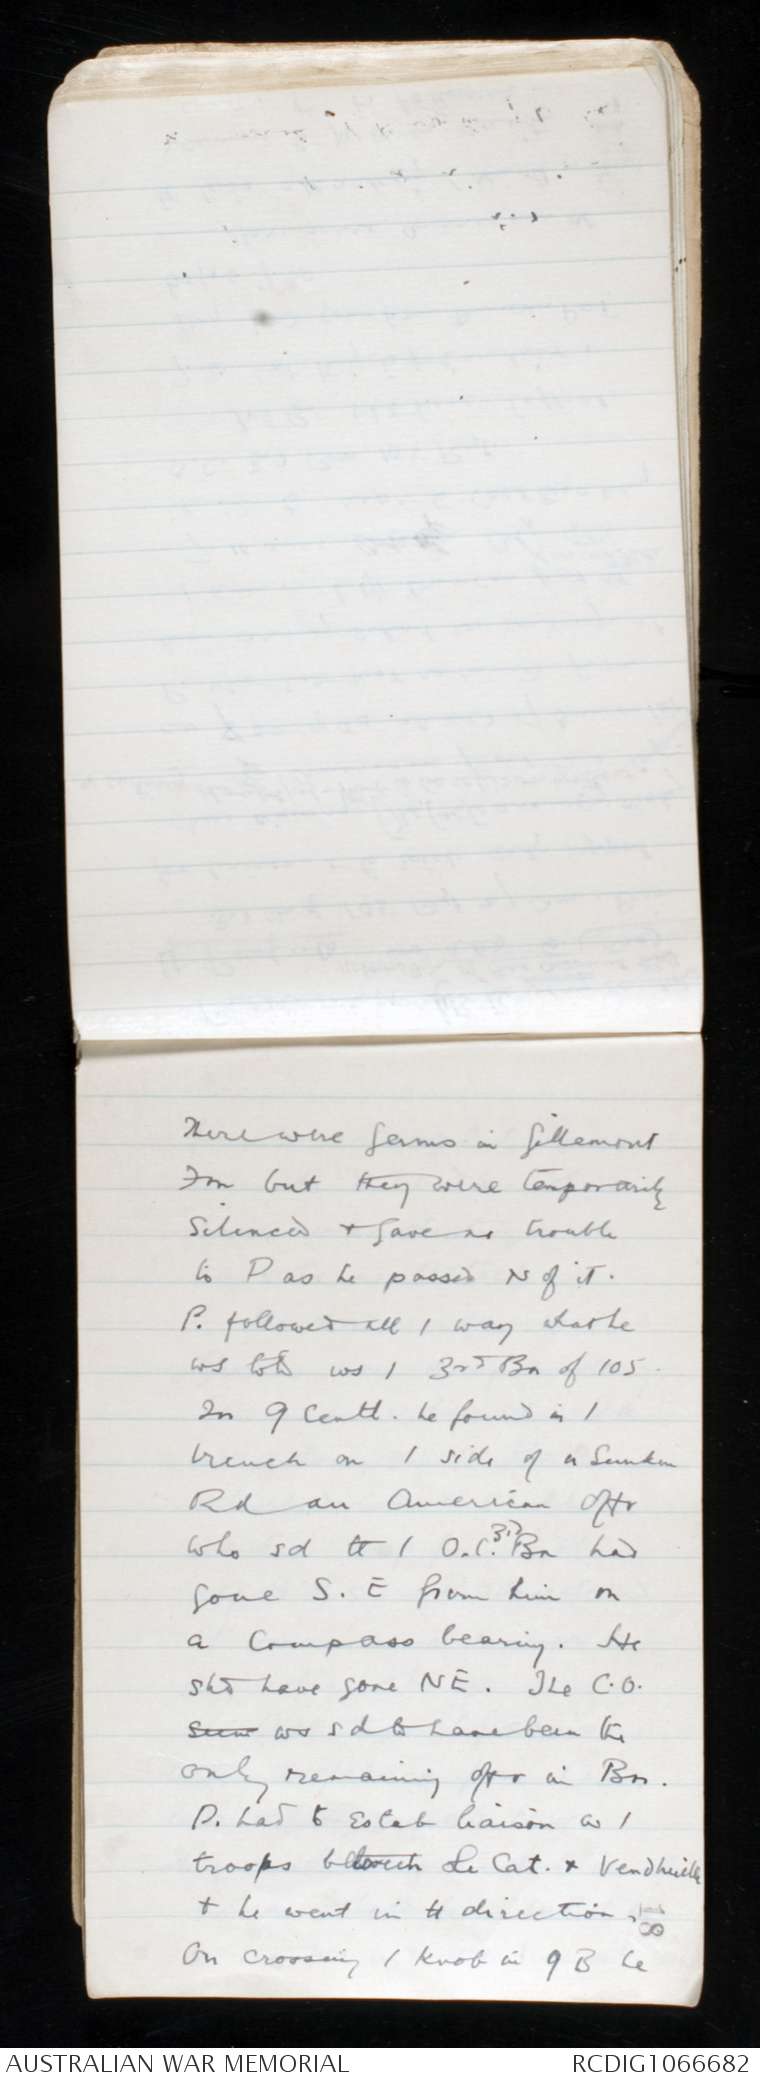 There were Germs in Gillemont
Fm but they were temporarily
silenced + gave no trouble
to P as he passed N of it.
P. followed all / way what he
ws told ws / 3rd Bn of 105.
In 9 Centl. he found in /
trench on / side of a Sunken
Rd an American offr
who sd tt / O.C. 3rd Bn had
gone S.E from him on
a Compass bearing. He
shd have gone NE. The C.O.
ws sd to have been the
only remaining offr in Bn.
P. had to Estab liaison w /
troops Le Cat. & Vendhuille
+ he went in tt direction.
On crossing / Knob in 9 B he
18
AUSTRALIAN WAR MEMORIAL
RCDIG1066682